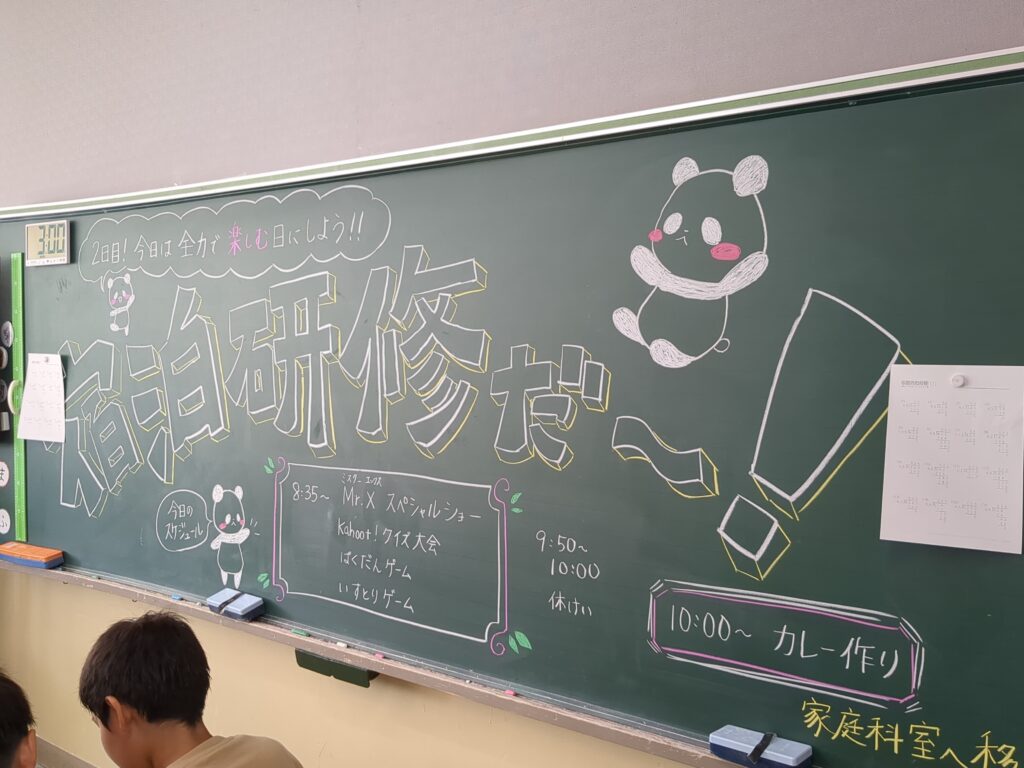 3:00
2日目!今日は全力で楽しむ日にしよう!!
宿泊研修だ〜!
今日の
スケジュール
ミスターエックス
8:35〜 Mr.X スペシャルショー
Kahoot!クイズ大会
ばくだんゲーム
いすとりゲーム
9:50〜
10:00
休けい
10:00〜 カレー作り
家庭科室へ移